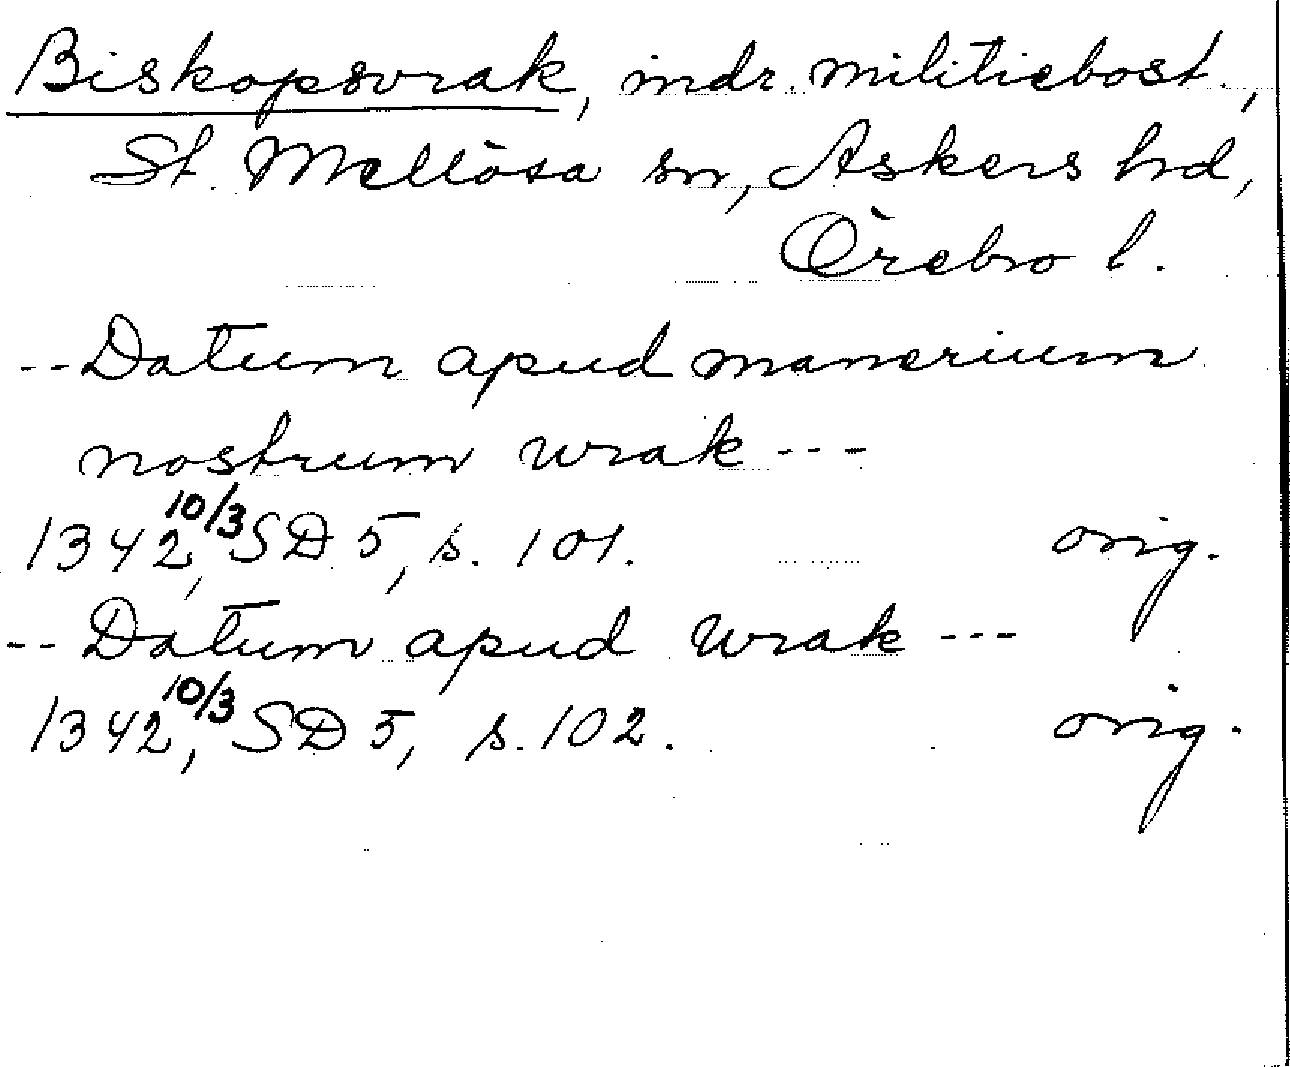 Biskopsvrak, indr. militiebost.,
St. Mellösa sn, Askers hrd,
Örebro l.
-- Datum apud manerium
nostrum wrak ---
1342, 10/3 SD 5, s. 101. orig.
-- Datum apud wrak ---
1342, 10/3 SD 5, s. 102. orig.